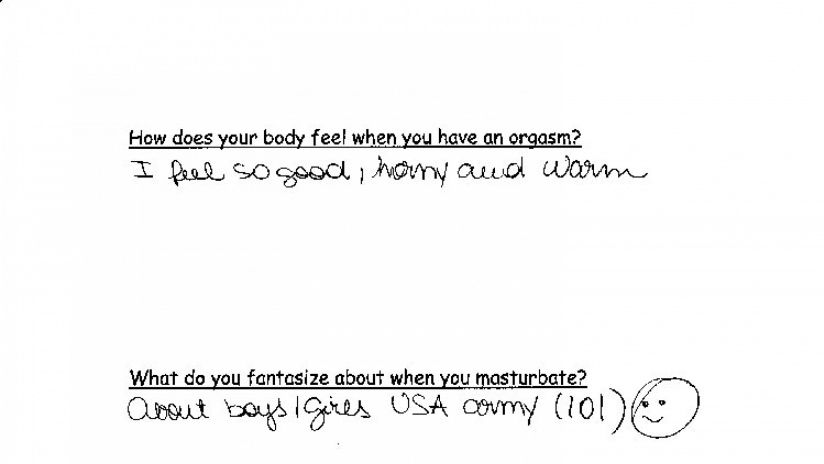 How does your body feel when you have an orgasm?
I feel so good, horny and warm
What do you fantasize about when you masturbate?
About boys/girls USA army (101)